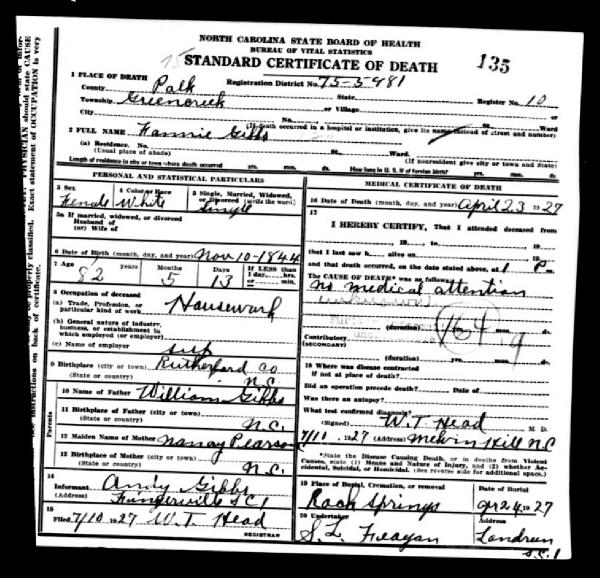 NORTH CAROLINA STATE BOARD OF HEALTH
BUREAU OF VITAL STATISTICS
STANDARD CERTIFICATE OF DEATH
135
75
1 PLACE OF DEATH
Registration District No. 75-5981
County Polk State Register No. 10
Township Greencreek or Village
City No. Ward
(If death occurred in a hospital or institution, give its name instead of street and number)
2 FULL NAME Fannie Gibbs
(a) Residence. No. St. Ward.
(Usual place of abode) (If nonresident give city or town and State)
Length of residence in city or town where death occurred yrs. mos. ds. How long in U. S. if of foreign birth? yrs. mos. ds.
PERSONAL AND STATISTICAL PARTICULARS
3 Sex 4 Color or Race 5 Single, Married, Widowed, or Divorced (write the word)
Female White Single
5a If married, widowed, or divorced
Husband of
(or) Wife of
6 Date of Birth (month, day, and year) Nov 10-1844
7 Age years Months Days If LESS than
1 day, hrs.
or min.
82 5 13
8 Occupation of deceased
(a) Trade, Profession, or particular kind of work Housework
(b) General nature of industry,
business, or establishment in
which employed (or employer)
(c) Name of employer self
9 Birthplace (city or town) Rutherford Co
(State or country) N.C.
Parents
10 Name of Father William Gibbs
11 Birthplace of Father (city or town)
(State or country) N.C.
12 Maiden Name of Mother Nancy Pearson
13 Birthplace of Mother (city or town)
(State or country) N.C.
14
Informant Andy Gibbs
(Address) S C 1
15
Filed 7/10 1927 W. T. Head
REGISTRAR
MEDICAL CERTIFICATE OF DEATH
16 Date of Death (month, day, and year) April 23 1927
17
I HEREBY CERTIFY, That I attended deceased from
, 19 , to , 19
that I last saw h alive on , 19
and that death occurred, on the date stated above, at 1 P m.
The CAUSE OF DEATH* was as follows:
No medical attention
(unknown)
164
9
(duration) yrs. mos. ds.
Contributory
(SECONDARY)
(duration) yrs. mos. ds.
18 Where was disease contracted
if not at place of death?
Did an operation precede death? Date of
Was there an autopsy?
What test confirmed diagnosis?
(Signed) W. T. Head M. D.
7/10 1927 (Address) Melvin Hill N C
*State the Disease Causing Death, or in deaths from Violent
Causes, state (1) Means and Nature of Injury, and (2) whether Accidental, Suicidal, or Homicidal. (See reverse side for additional space.)
19 Place of Burial, Cremation, or removal Date of Burial
Rock Springs Apr 24 1927
20 Undertaker Address
S. L. Feagan Landrum
S.C. 1
PHYSICIAN should state CAUSE
Exact statement of OCCUPATION is very
properly classified.
instructions on back of certificate.